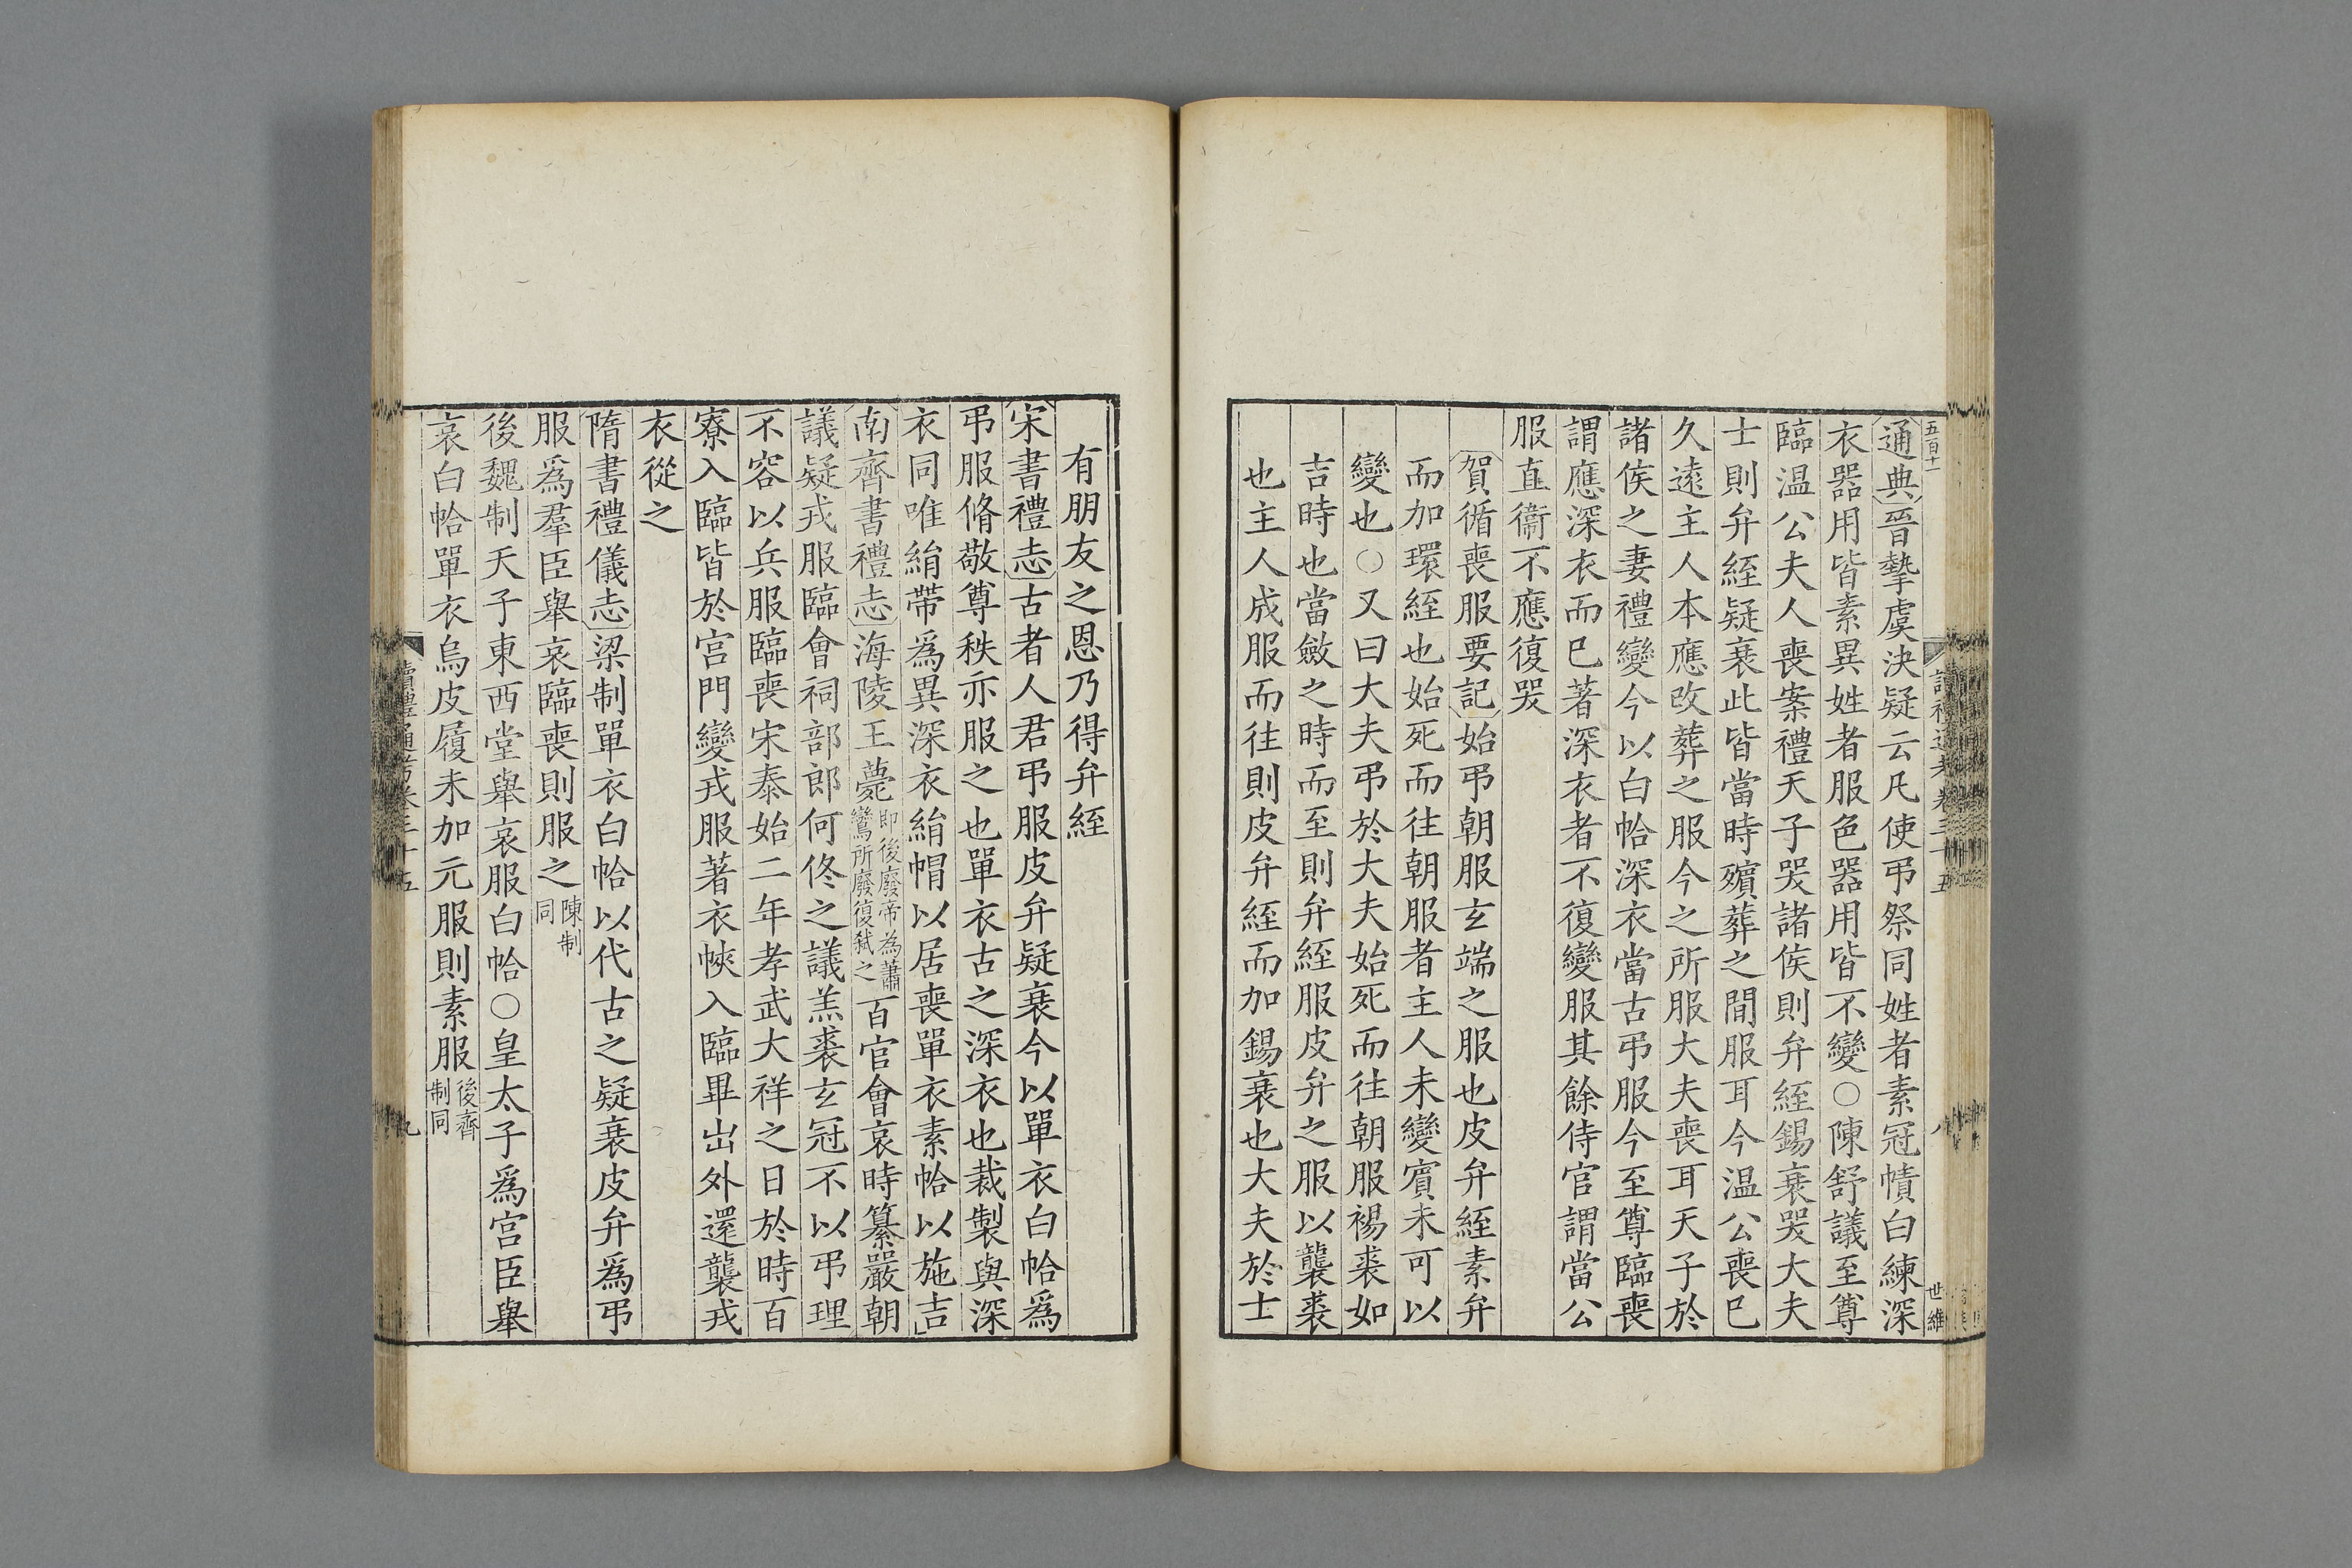 五百十一
通典晉摯虞決疑云凡使弔祭同姓者素冠幘白練深
衣器用皆素異姓者服色器用皆不變○陳舒議至尊
臨温公夫人喪案禮天子哭諸侯則弁絰錫衰哭大夫
士則弁絰疑衰此皆當時殯葬之間服耳今温公喪已
久遠主人本應改葬之服今之所服大夫喪耳天子於
諸侯之妻禮變今以白帢深衣當古弔服今至尊臨喪
謂應深衣而已著深衣者不復變服其餘侍官謂當公
服直衞不應復哭
賀循喪服要記始弔朝服玄端之服也皮弁絰素弁
而加環絰也始死而往朝服者主人未變賓未可以
變也○又曰大夫弔於大夫始死而往朝服裼裘如
吉時也當斂之時而至則弁絰服皮弁之服以襲裘
也主人成服而往則皮弁絰而加錫衰也大夫於士
八
世維
有朋友之恩乃得弁絰
宋書禮志古者人君弔服皮弁疑衰今以單衣白帢爲
弔服脩敬尊秩亦服之也單衣古之深衣也裁製與深
衣同唯絹帶爲異深衣絹帽以居喪單衣素帢以施吉
南齊書禮志海陵王薨即後廢帝為蕭鸞所廢復弒之百官會哀時纂嚴朝
議疑戎服臨會祠部郎何佟之議羔裘玄冠不以弔理
不容以兵服臨喪宋泰始二年孝武大祥之日於時百
寮入臨皆於宮門變戎服著衣㡊入臨畢出外還襲戎
衣從之
隋書禮儀志梁制單衣白帢以代古之疑衰皮弁爲弔
服爲羣臣舉哀臨喪則服之陳制同
後魏制天子東西堂舉哀服白帢○皇太子爲宮臣舉
哀白帢單衣烏皮履未加元服則素服後齊制同
讀禮通考卷三十五
九